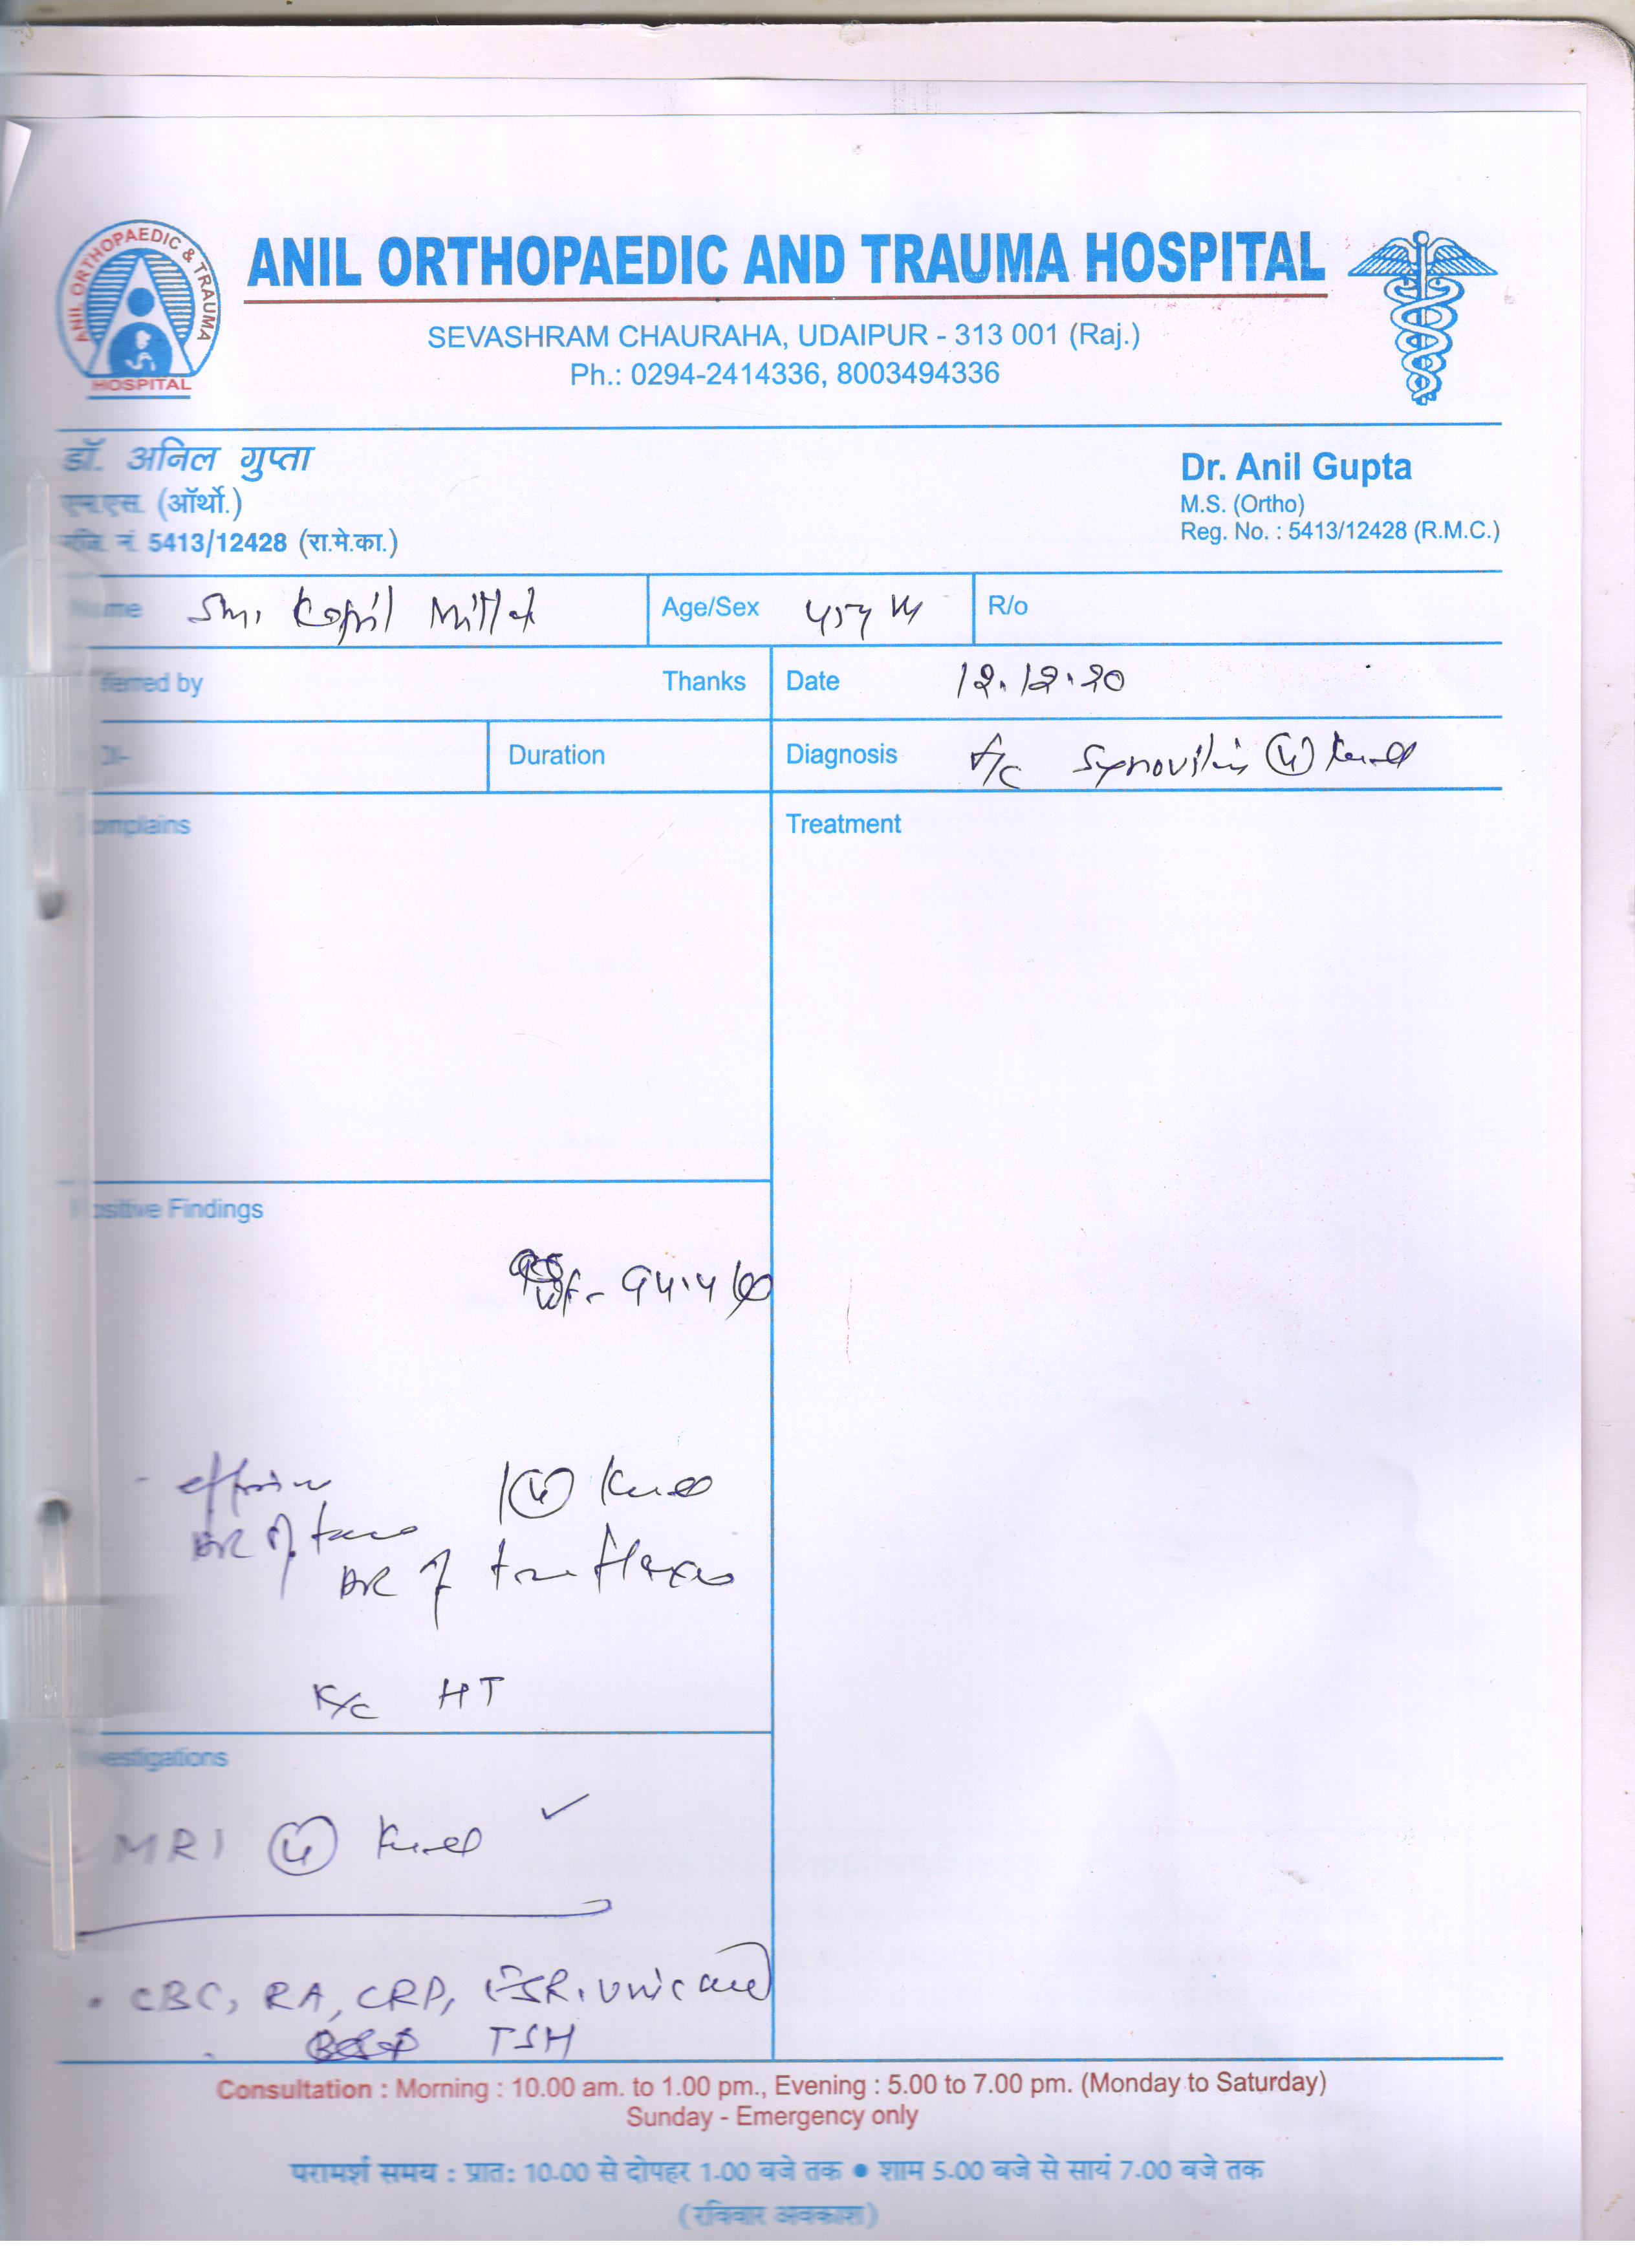 ANIL ORTHOPAEDIC & TRAUMA
HOSPITAL
ANIL ORTHOPAEDIC AND TRAUMA HOSPITAL
SEVASHRAM CHAURAHA, UDAIPUR - 313 001 (Raj.)
Ph.: 0294-2414336, 8003494336
डॉ. अनिल गुप्ता
एम.एस. (ऑर्थो.)
रजि. नं. 5413/12428 (रा.मे.का.)
Dr. Anil Gupta
M.S. (Ortho)
Reg. No. : 5413/12428 (R.M.C.)
Name Shri Kapil Mittal Age/Sex 45y M R/o
ferred by Thanks Date 12.12.20
Duration Diagnosis Synovitis (L) Knee
omplains Treatment
ositive Findings
94.4
- effusion (L) Knee
K/c HT
estigations
MRI (L) Knee ✓
CBC, RA, CRP, ESR, uric acid
TSH
Consultation : Morning : 10.00 am. to 1.00 pm., Evening : 5.00 to 7.00 pm. (Monday to Saturday)
Sunday - Emergency only
परामर्श समय : प्रातः 10.00 से दोपहर 1.00 बजे तक ● शाम 5.00 बजे से सायं 7.00 बजे तक
(रविवार अवकाश)